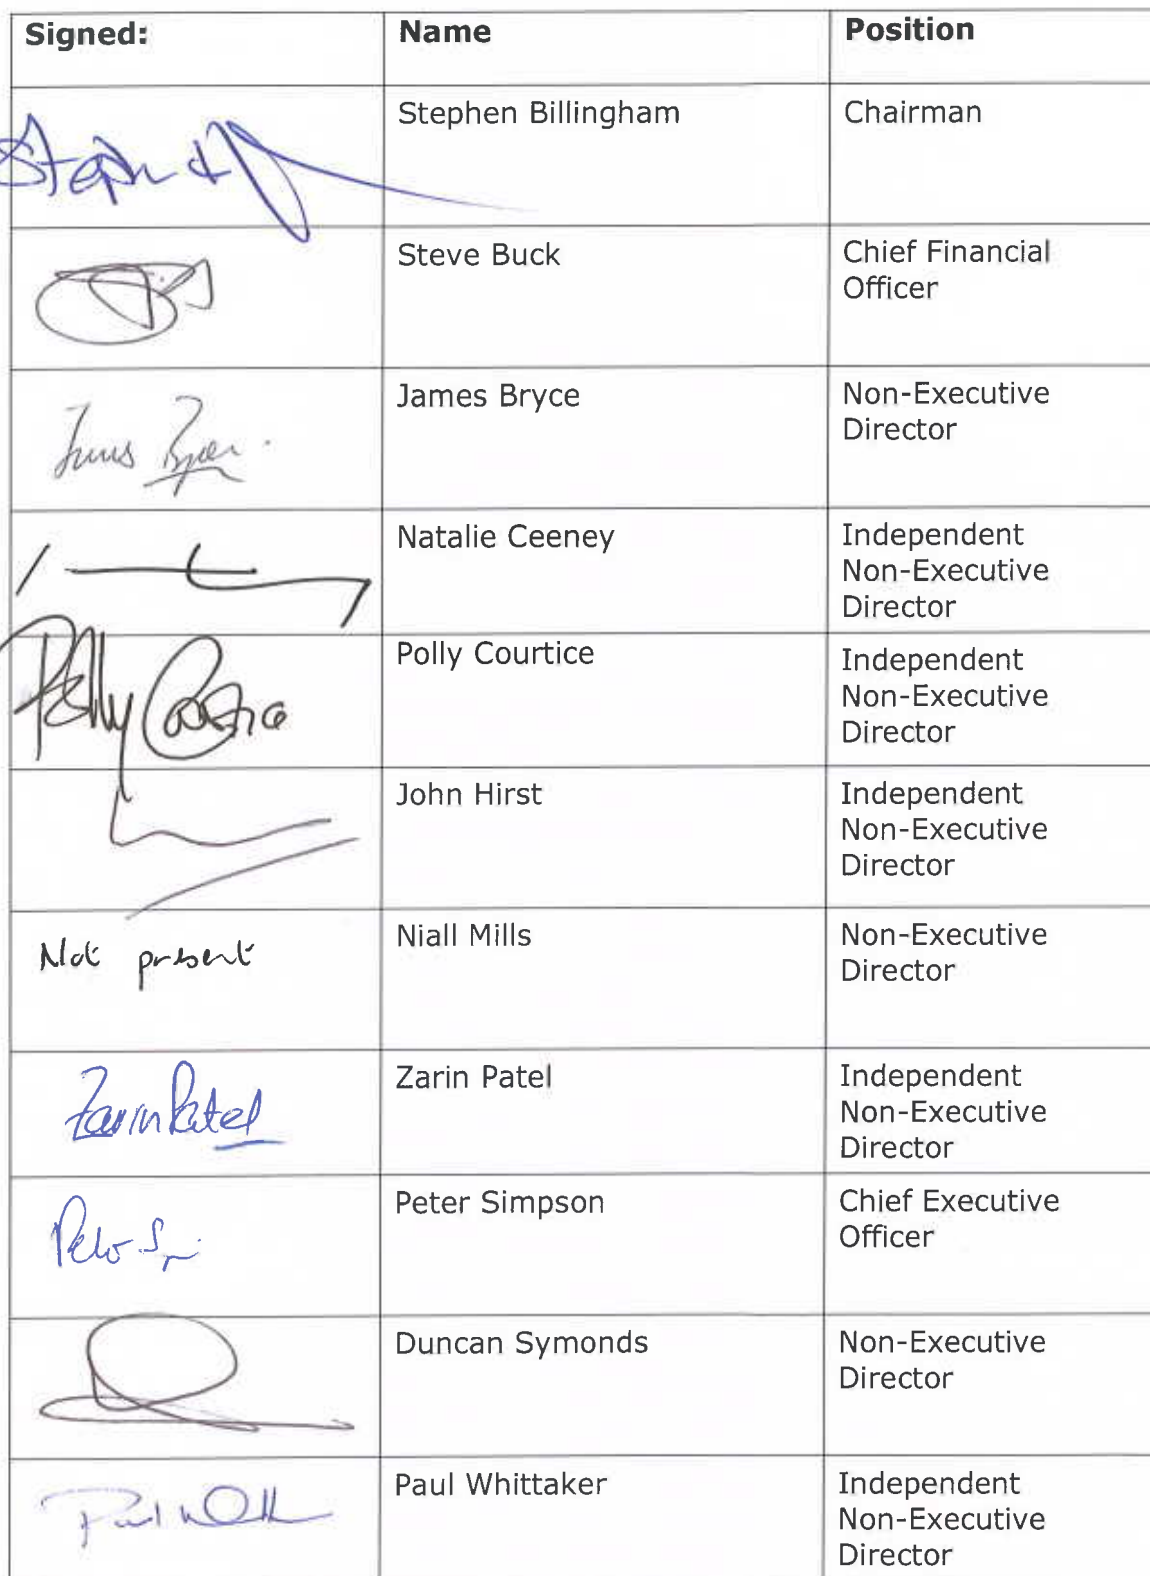 Signed: Name Position
Stephen Billingham Chairman
Steve Buck Chief Financial
Officer
James Bryce Non-Executive
Director
Natalie Ceeney Independent
Non-Executive
Director
Polly Courtice
Polly Courtice Independent
Non-Executive
Director
John Hirst Independent
Non-Executive
Director
Not present Niall Mills Non-Executive
Director
Zarin Patel
Zarin Patel Independent
Non-Executive
Director
Peter Simpson Chief Executive
Officer
Duncan Symonds Non-Executive
Director
Paul Whittaker Independent
Non-Executive
Director